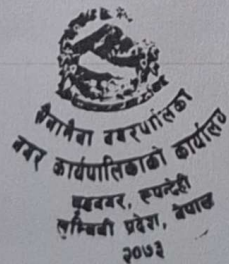 सैनामैना नगरपालिका
नगर कार्यपालिकाको कार्यालय
बुद्धनगर, रुपन्देही
लुम्बिनी प्रदेश, नेपाल
२०७३